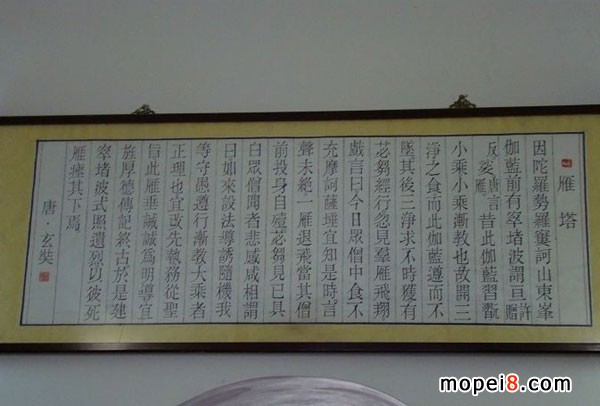 雁塔
因陀羅勢羅窶訶山東峯
伽藍前有窣堵波謂亘許贈
反娑唐言雁昔此伽藍習翫
小乘小乘漸教也故開三
淨之食而此伽藍遵而不
墜其後三淨求不時獲有
苾芻經行忽見羣雁飛翔
戲言曰今日眾僧中食不
充摩訶薩埵宜知是時言
聲未絕一雁退飛當其僧
前投身自殪苾芻見已具
白眾僧聞者悲感咸相謂
曰如來設法導誘隨機我
等守愚遵行漸教大乘者
正理也宜改先執務從聖
旨此雁垂誡誠為明導宜
旌厚德傳記終古於是建
窣堵波式照遺烈以彼死
雁瘞其下焉
唐·玄奘
mopei8.com